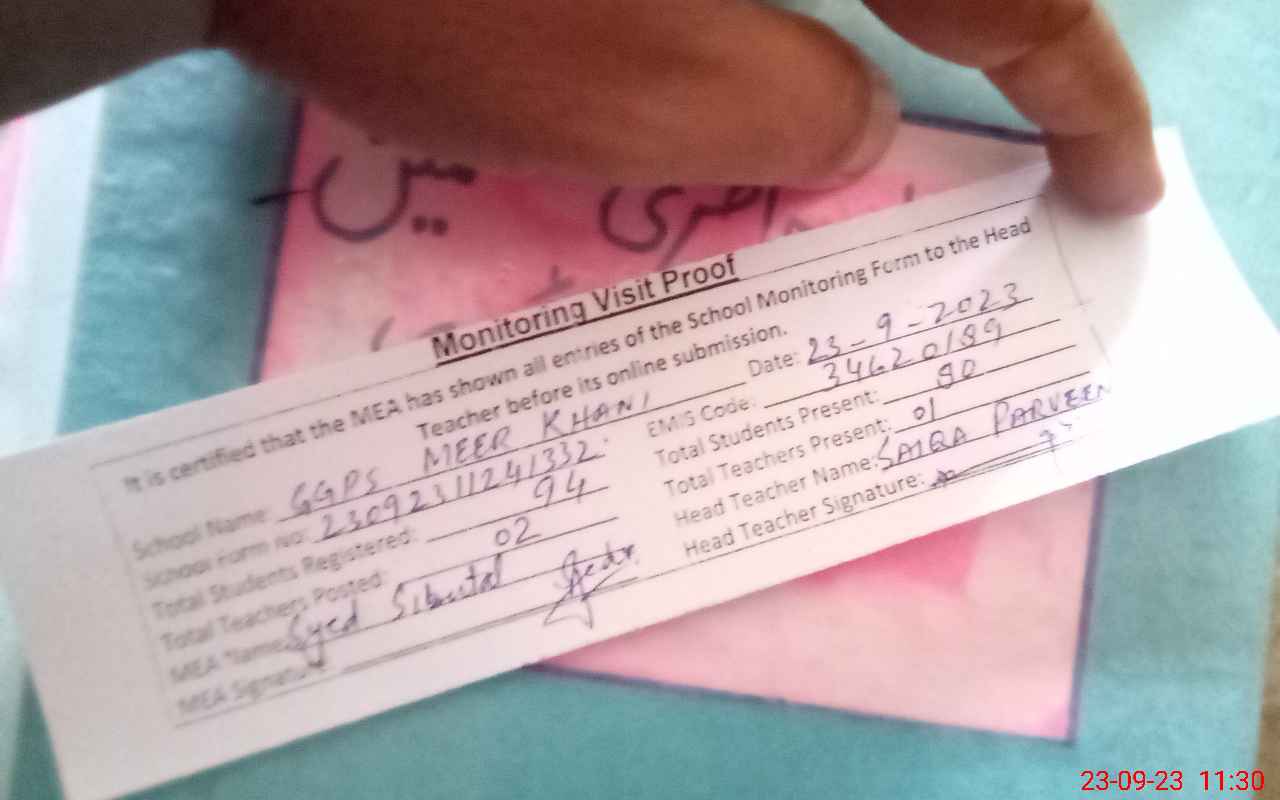 میں
Monitoring Visit Proof
It is certified that the MEA has shown all entries of the School Monitoring Form to the Head
Teacher before its online submission.
School Name: GGPS MEER KHANI Date: 23-9-2023
School Form No: 23092311241332 EMIS Code: 34620189
Total Students Registered: 94 Total Students Present: 80
Total Teachers Posted: 02 Total Teachers Present: 01
MEA Name: Syed Head Teacher Name: SAIQA PARVEEN
MEA Signature: Head Teacher Signature:
23-09-23 11:30